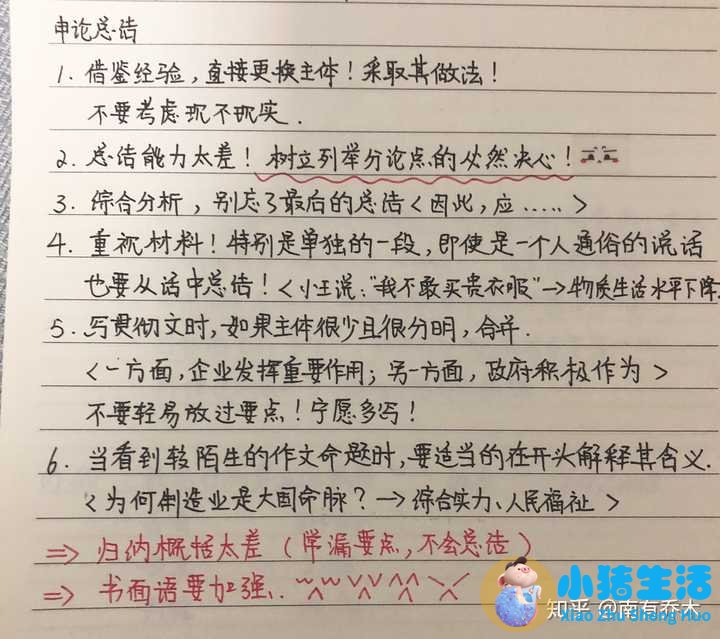 申论总结
1. 借鉴经验，直接更换主体！采取其做法！
不要考虑现不现实.
2. 总结能力太差！树立列举分论点的必然决心！
3. 综合分析，别忘了最后的总结<因此，应……>
4. 重视材料！特别是单独的一段，即使是一个人通俗的说话
也要从话中总结！<小王说："我不敢买贵衣服"→物质生活水平下降
5. 写贯彻文时，如果主体很少且很分明，合并.
<一方面，企业发挥重要作用；另一方面，政府积极作为>
不要轻易放过要点！宁愿多写！
6. 当看到较陌生的作文命题时，要适当的在开头解释其含义.
<为何制造业是大国命脉？→综合实力、人民福祉>
=> 归纳概括太差（常漏要点，不会总结）
=> 书面语要加强.
小猪生活
Xiao Zhu Sheng Huo
知乎 @南有乔木